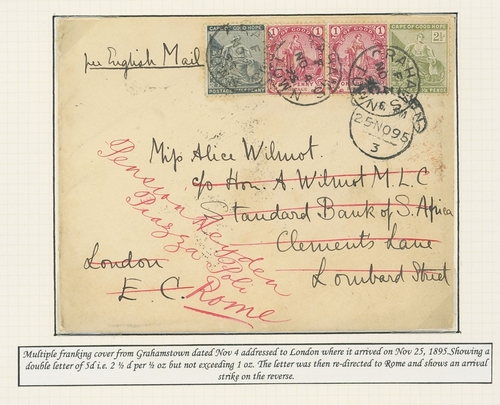 per English Mail
CAPE OF GOOD HOPE
POSTAGE
HALF PENNY
1 1
1 1
CAPE OF GOOD HOPE
2½
GRAHAMSTOWN
NO 4
95
25 NO 95
3
Miss Alice Wilmot.
c/o Hon. A. Wilmot M.L.C
Standard Bank of S. Africa
Clements Lane
Lombard Street
London
E. C.
Pension Heyden
Piazza Poli
Rome
Multiple franking cover from Grahamstown dated Nov 4 addressed to London where it arrived on Nov 25, 1895.Showing a
double letter of 5d i.e. 2 ½ d per ½ oz but not exceeding 1 oz. The letter was then re-directed to Rome and shows an arrival
strike on the reverse.